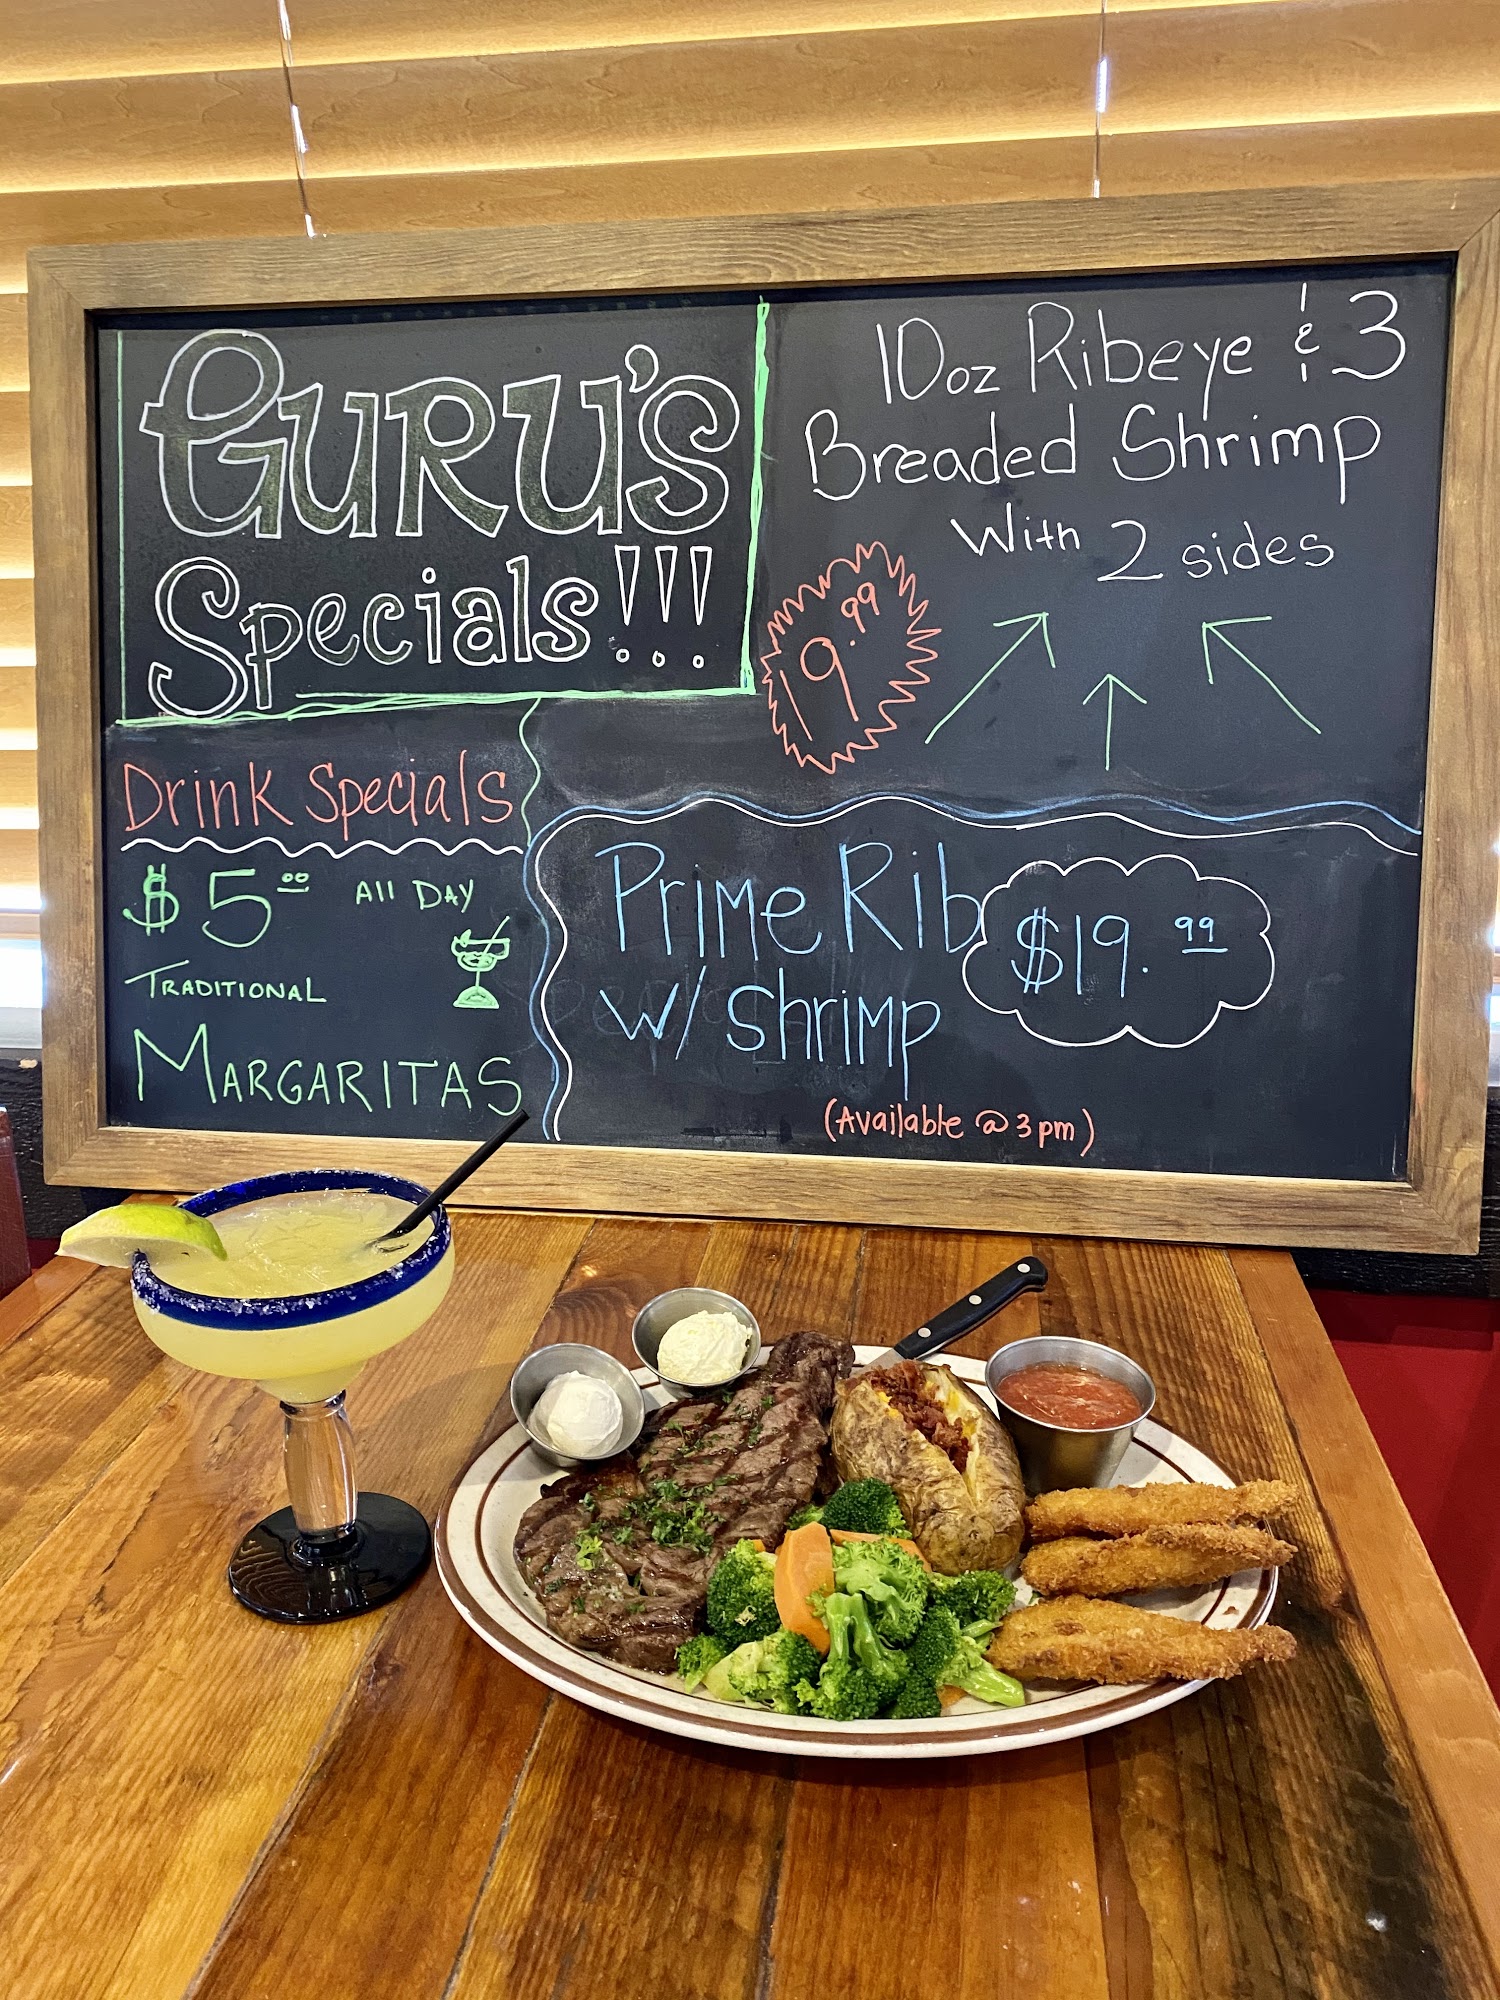 GURU'S
Specials!!!
10oz Ribeye & 3
Breaded Shrimp
With 2 sides
19.99
Drink Specials
$5.00 All DAY
TRADITIONAL
MARGARITAS
Prime Rib
w/ shrimp
$19.99
(Available @ 3pm)